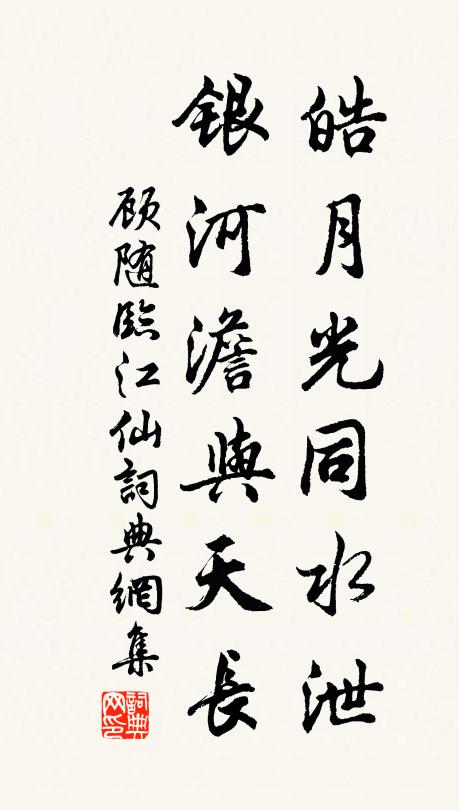 皓月光同水泄
銀河澹與天長
顾随臨江仙詞典網集
詞典网印